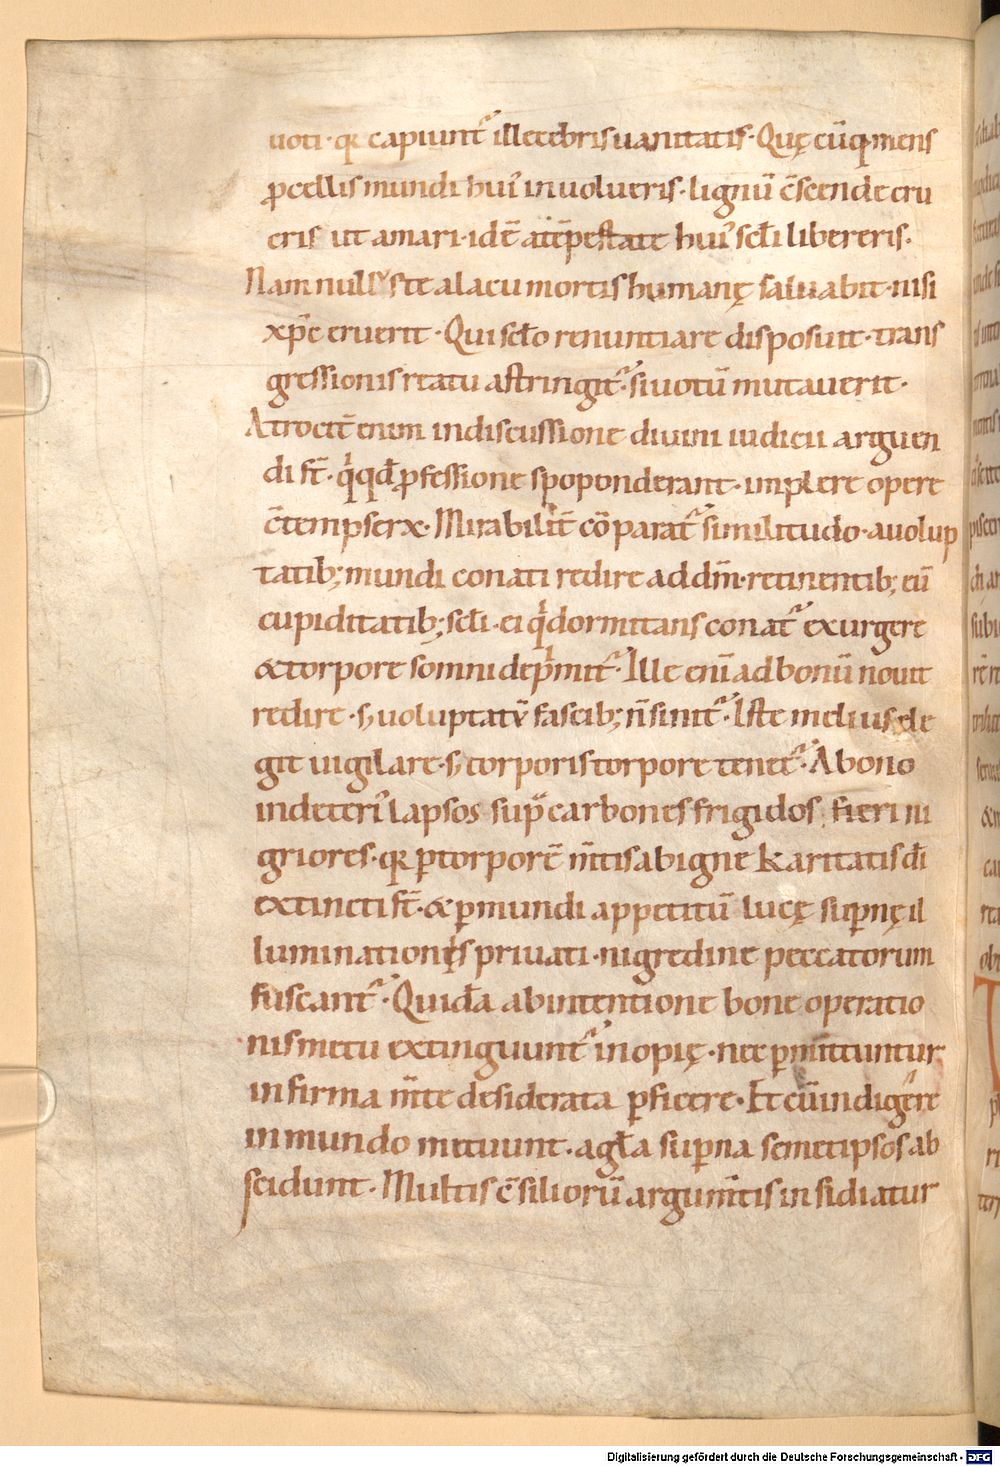 uoti · qr capiunt᷑ illecebris uanitatis · Quę cū́q; mens
ꝓcellis mundi hui᷒ inuolueris · lignū c̄scende cru
eris ut amari · idē a tēpestate hui᷒ scl̄i libereris.
Nam nullus te a lacu mortis humanę saluabit · nisi
xp̄c eruerit · Qui scl̄o renuntiare disposuit · trans
gressionis reatu astringit᷑ · si uotū mutauerit ·
Atrocit̄ enim in discussione diuini iudicii arguen
di st̄ · qͥ qd̄ ꝓfessione spoponderant · implere opere
c̄tempserx̄ · Mirabilit̄ cōparat᷑ similitudo · a uolup
tatib; mundi conati redire ad dn̄m · retinentib; eū
cupiditatib; scl̄i · ei qͥ dormitans conat᷑ exurgere
& torpore somni dep̄mit᷑ · Ille eni᷑ ad bonū nouit
redire · s; uoluptatū fascib; n̄ sinit᷑ · Iste melius ele
git uigilare · s; corporis torpore tenet᷑ · A bono
in deteri᷒ lapsos sup carbones frigidos fieri ni
griores · qr ꝑ torporē m̄tis ab igne karitatis dī
extincti st̄ · & ꝑ mundi appetitū lucę suꝑnę il
luminationis priuati · nigredine peccatorum
fuscant᷑ · Quidā ab intentione bone operatio
nis metu extinguunt᷑ inopię · nec ꝑmittuntur
infirma m̄te desiderata ꝑficere · Et cū indigere
in mundo metuunt · a gl̄a suꝑna semetipsos ab
scidunt · Multis c̄siliorū argum̄tis insidiatur
Digitalisierung gefördert durch die Deutsche Forschungsgemeinschaft - DFG